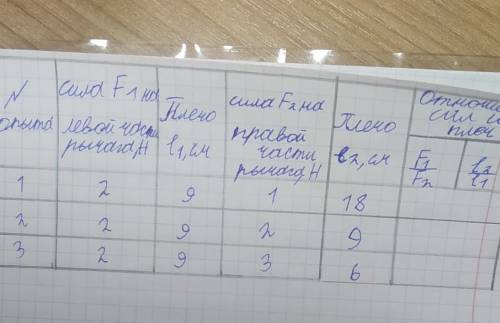 N опыта
сила F1 на левой части рычага, Н
Плечо l1, см
сила F2 на правой части рычага, Н
Плечо l2, см
F1/F2
l2/l1
1 2 9 1 18
2 2 9 2 9
3 2 9 3 6